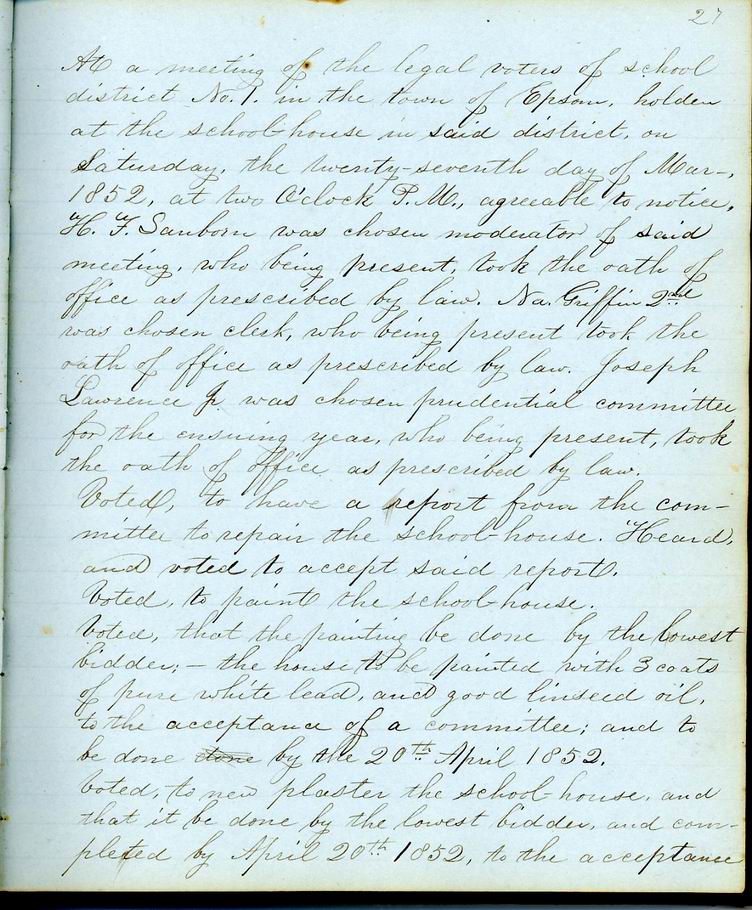 27
At a meeting of the legal voters of school
district No. 1. in the town of Epsom, holden
at the school-house in said district, on
Saturday, the twenty-seventh day of Mar-,
1852, at two O'clock P.M., agreeable to notice,
H. F. Sanborn was chosen moderator of said
meeting, who being present, took the oath of
office as prescribed by law. Na. Griffin 2nd
was chosen clerk, who being present took the
oath of office as prescribed by law. Joseph
Lawrence Jr was chosen prudential committee
for the ensuing year, who being present, took
the oath of office as prescribed by law.
Voted, to have a report from the com-
mittee to repair the school-house. Heard,
and voted to accept said report.
Voted, to paint the school-house.
Voted, that the painting be done by the lowest
bidder; – the house to be painted with 3 coats
of pure white lead, and good linseed oil,
to the acceptance of a committee; and to
be done done by the 20th April 1852.
Voted, to new plaster the school-house, and
that it be done by the lowest bidder, and com-
pleted by April 20th 1852, to the acceptance